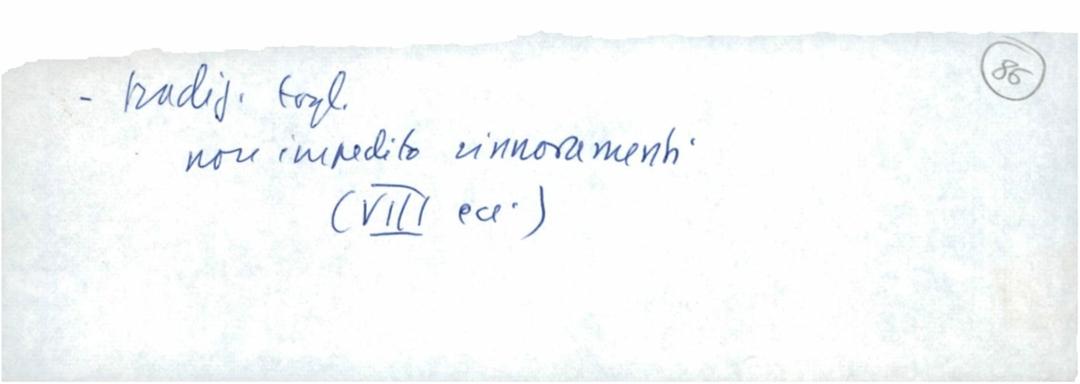 86
- tradiz. togl.
non impedito rinnovamenti
(VIII ecc.)